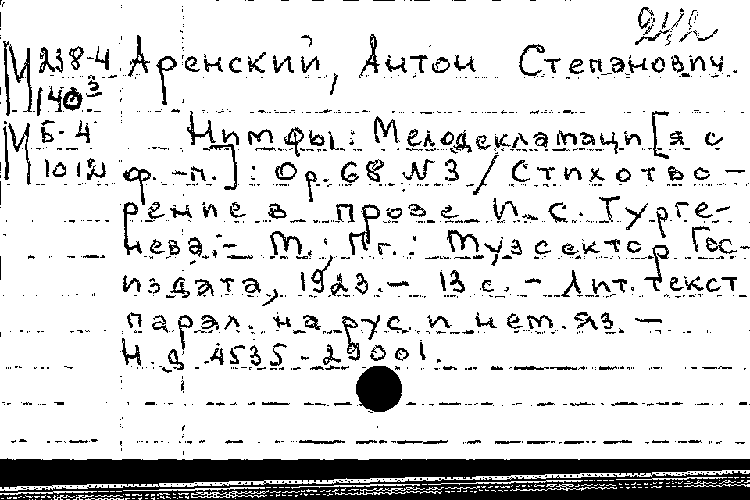 242
М 238-4 Аренский, Антон Степанович.
140³
М Б-4 Нимфы: Мелодекламаци[я с
1012 ф.-п.]: Op. 68 № 3 / Стихотво-
рение в прозе И. С. Турге-
нева. - М.; Пг.: Музсектор Гос-
издата, 1923. - 13 с. - Лит. текст
парал. на рус и нем. яз. -
Н. д. 4535-29001.